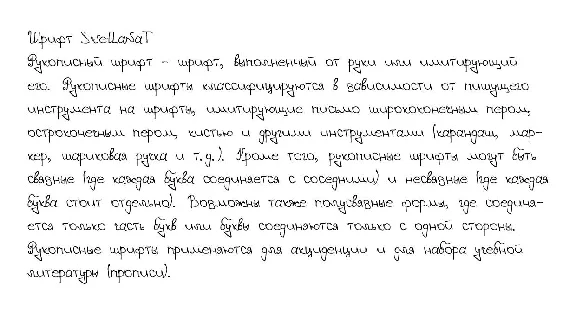 Шрифт SvetLanaT
Рукописный шрифт - шрифт, выполненный от руки или имитирующий
его. Рукописные шрифты классифицируются в зависимости от пишущего
инструмента на шрифты, имитирующие письмо ширококонечным пером,
остроконечным пером, кистью и другими инструментами (карандаш, мар-
кер, шариковая ручка и т.д.). Кроме того, рукописные шрифты могут быть
связные (где каждая буква соединяется с соседними) и несвязные (где каждая
буква стоит отдельно). Возможны также полусвязные формы, где соединя-
ется только часть букв или буквы соединяются только с одной стороны.
Рукописные шрифты применяются для акциденции и для набора учебной
литературы (прописи).